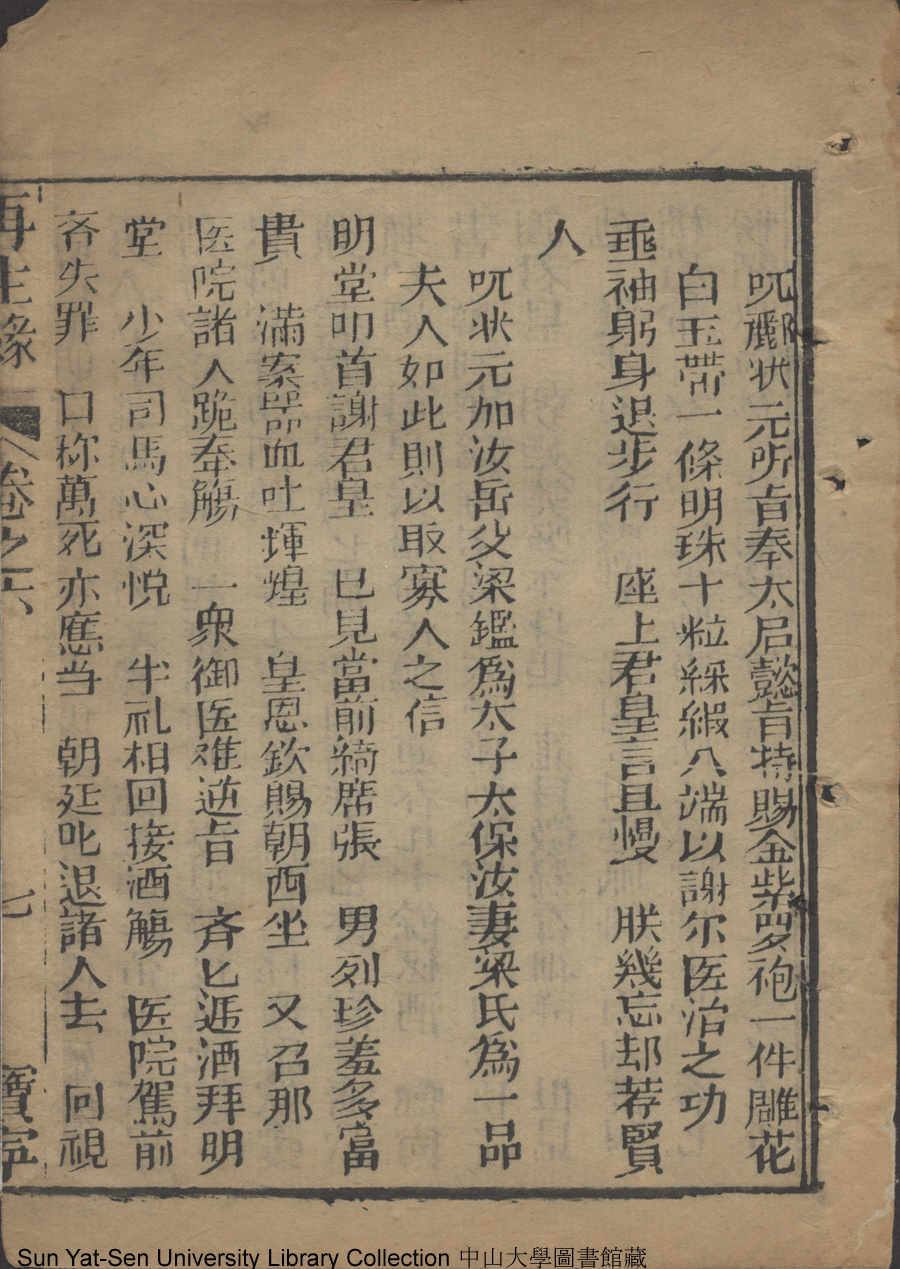 呪酈状元听旨奉太后懿旨特賜金紫罗袍一件雕花
白玉帶一條明珠十粒綵緞八端以謝尔医治之功
垂袖躬身退步行　座上君皇言且慢　朕幾忘却荐賢
人
呪状元加汝岳父梁鑑爲太子太保汝妻梁氏爲一品
夫人如此則以取寡人之信
明堂叩首謝君皇　已見當前綺席張　男列珍羞多富
貴　滿案器皿吐輝煌　皇恩欽賜朝西坐　又召那
医院諸人跪奉觴　一衆御医难逆旨　斉匕遞酒拜明
堂　少年司馬心深悦　半礼相回接酒觴　医院駕前
吝失罪　口称萬死亦應当　朝廷叱退諸人去　回視
再生緣　卷之六　七　寶寧
Sun Yat-Sen University Library Collection 中山大學圖書館藏